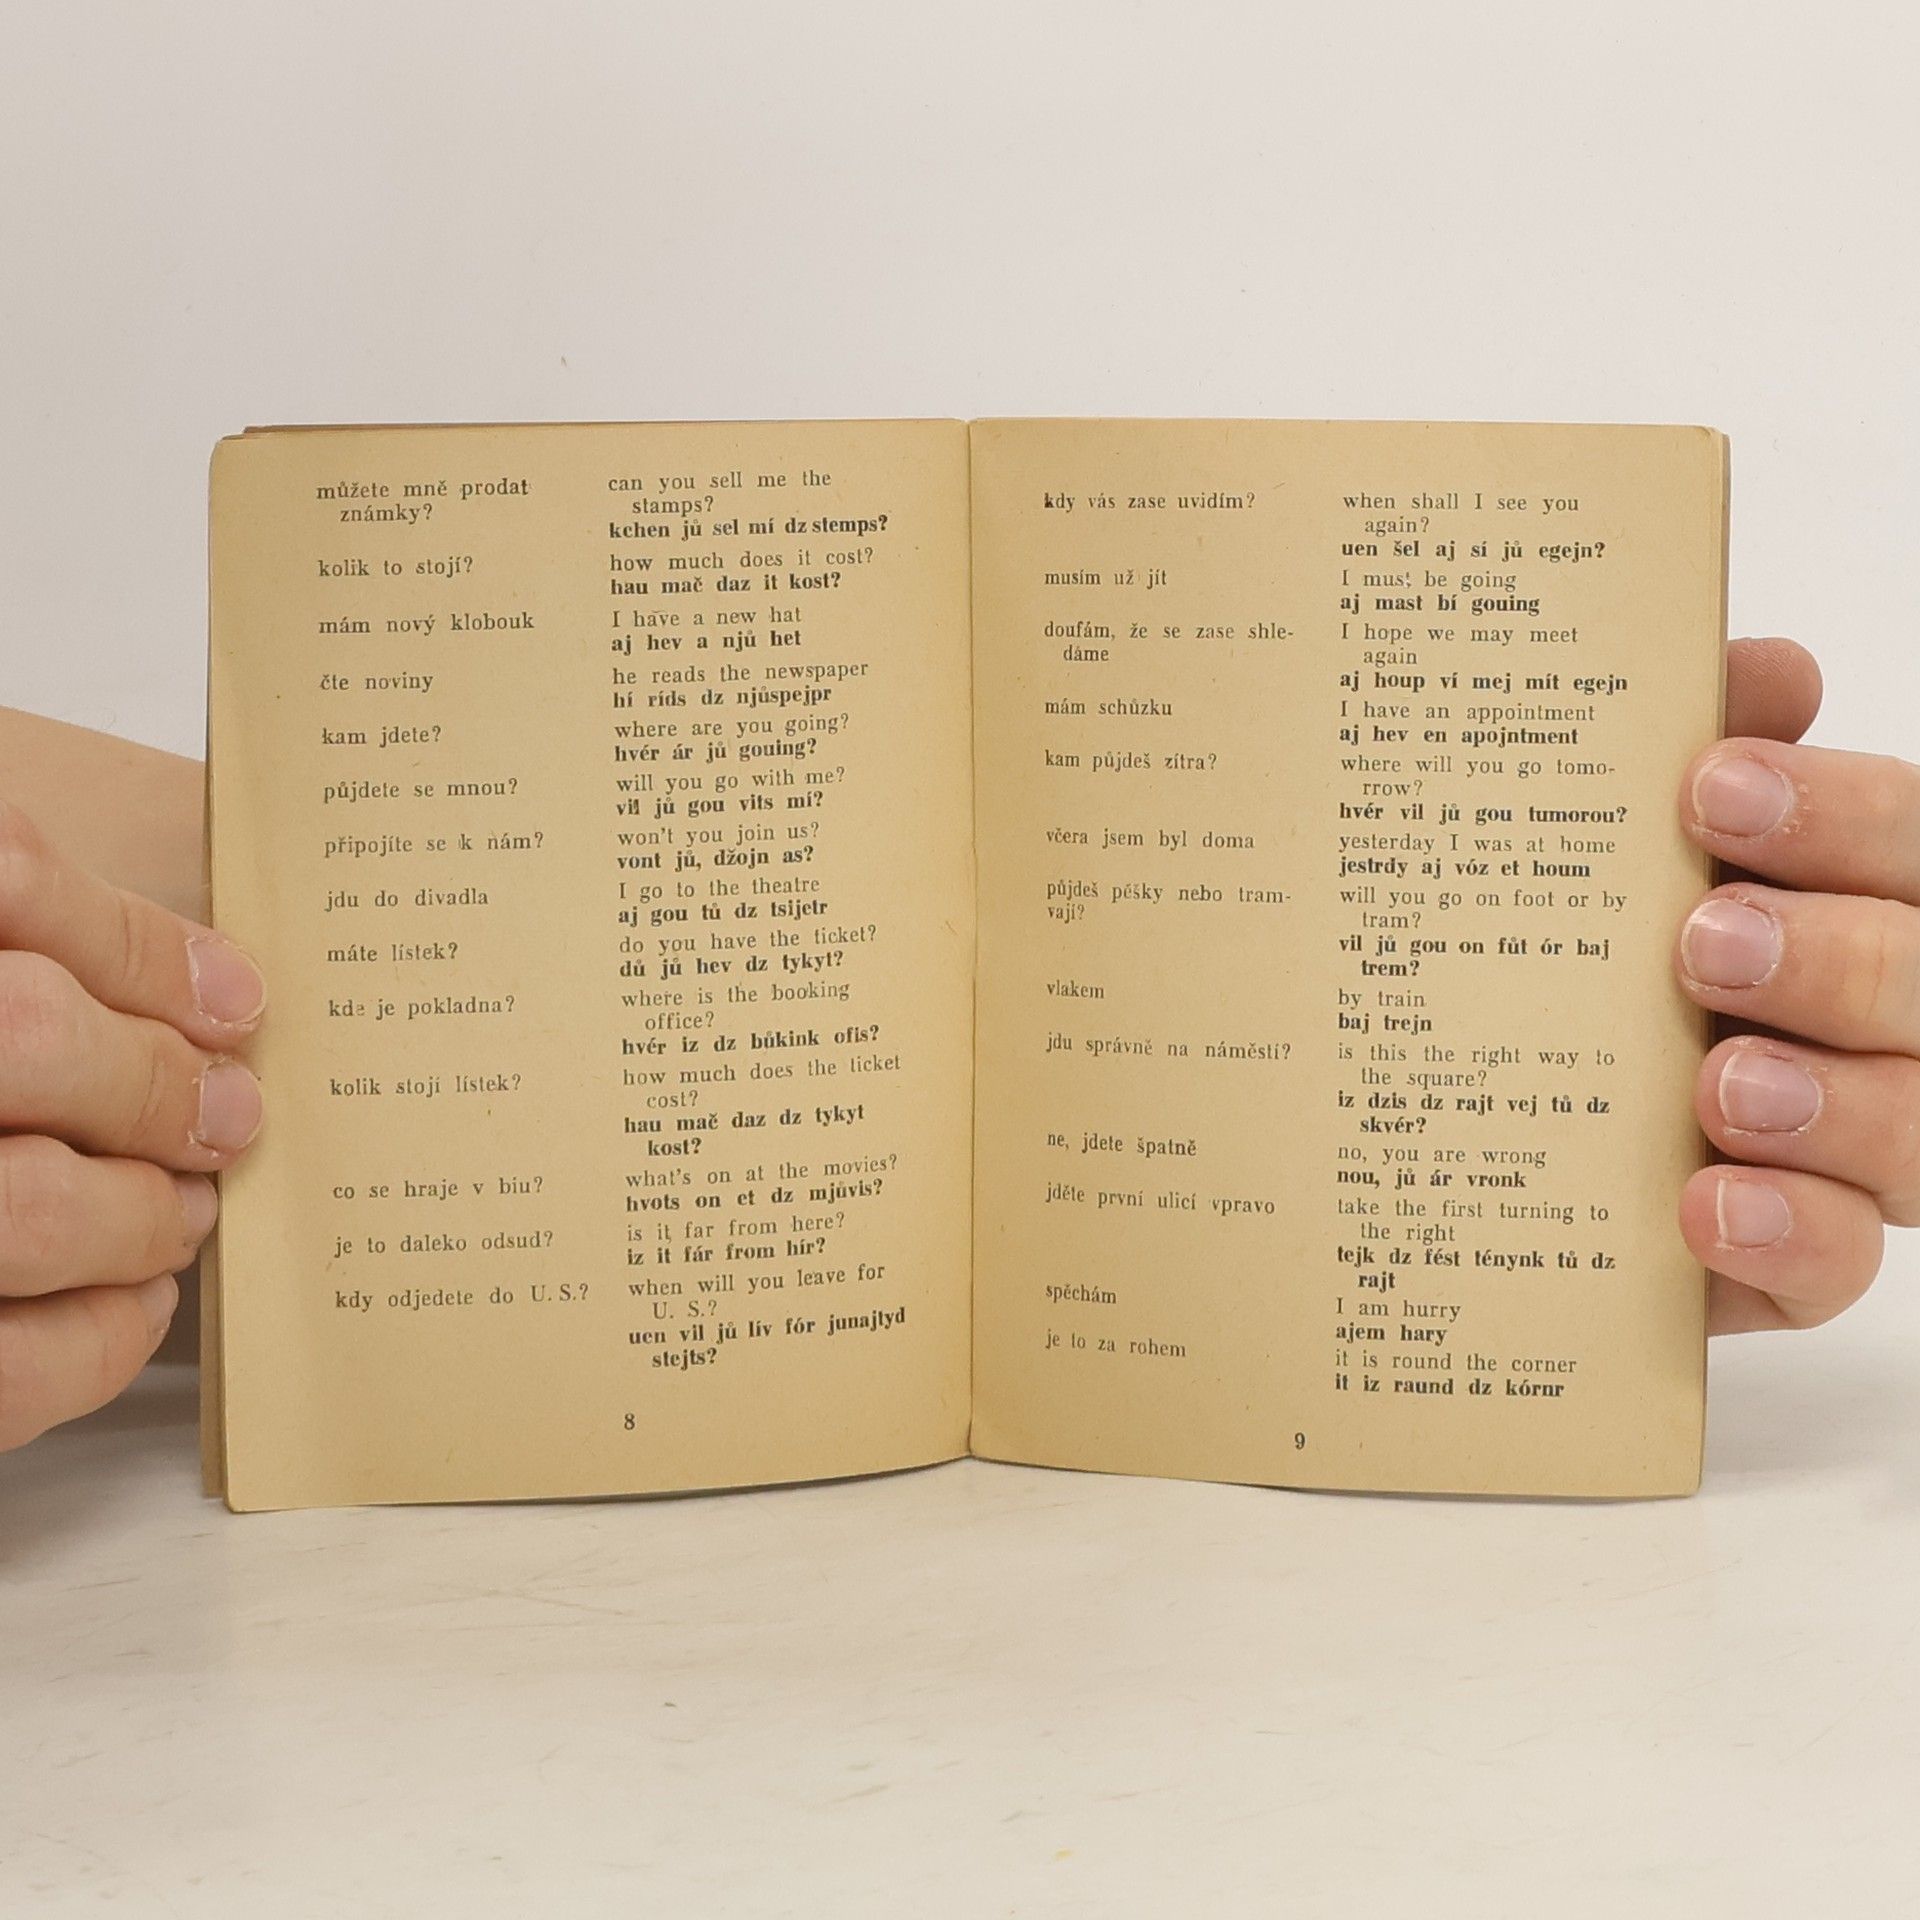 můžete mně prodat
známky?
can you sell me the
stamps?
kchen jů sel mí dz stemps?
kolik to stojí?
how much does it cost?
hau mač daz it kost?
mám nový klobouk
I have a new hat
aj hev a njů het
čte noviny
he reads the newspaper
hí ríds dz njůspejpr
kam jdete?
where are you going?
hvér ár jů gouing?
půjdete se mnou?
will you go with me?
vil jů gou vits mí?
připojíte se k nám?
won't you join us?
vont jů, džojn as?
jdu do divadla
I go to the theatre
aj gou tů dz tsijetr
máte lístek?
do you have the ticket?
dů jů hev dz tykyt?
kde je pokladna?
where is the booking
office?
hvér iz dz bůkink ofis?
kolik stojí lístek?
how much does the ticket
cost?
hau mač daz dz tykyt
kost?
co se hraje v biu?
what's on at the movies?
hvots on et dz mjůvis?
je to daleko odsud?
is it far from here?
iz it fár from hír?
kdy odjedete do U. S.?
when will you leave for
U. S.?
uen vil jů lív fór junajtyd
stejts?
8
kdy vás zase uvidím?
when shall I see you
again?
uen šel aj sí jů egejn?
musím už jít
I must be going
aj mast bí gouing
doufám, že se zase shle-
dáme
I hope we may meet
again
aj houp ví mej mít egejn
mám schůzku
I have an appointment
aj hev en apojntment
kam půjdeš zítra?
where will you go tomo-
rrow?
hvér vil jů gou tumorou?
včera jsem byl doma
yesterday I was at home
jestrdy aj vóz et houm
půjdeš péšky nebo tram-
vají?
will you go on foot or by
tram?
vil jů gou on fůt ór baj
trem?
vlakem
by train
baj trejn
jdu správně na náměstí?
is this the right way to
the square?
iz dzis dz rajt vej tů dz
skvér?
ne, jdete špatně
no, you are wrong
nou, jů ár vronk
jděte první ulicí vpravo
take the first turning to
the right
tejk dz fést ténynk tů dz
rajt
spěchám
I am hurry
ajem hary
je to za rohem
it is round the corner
it iz raund dz kórnr
9